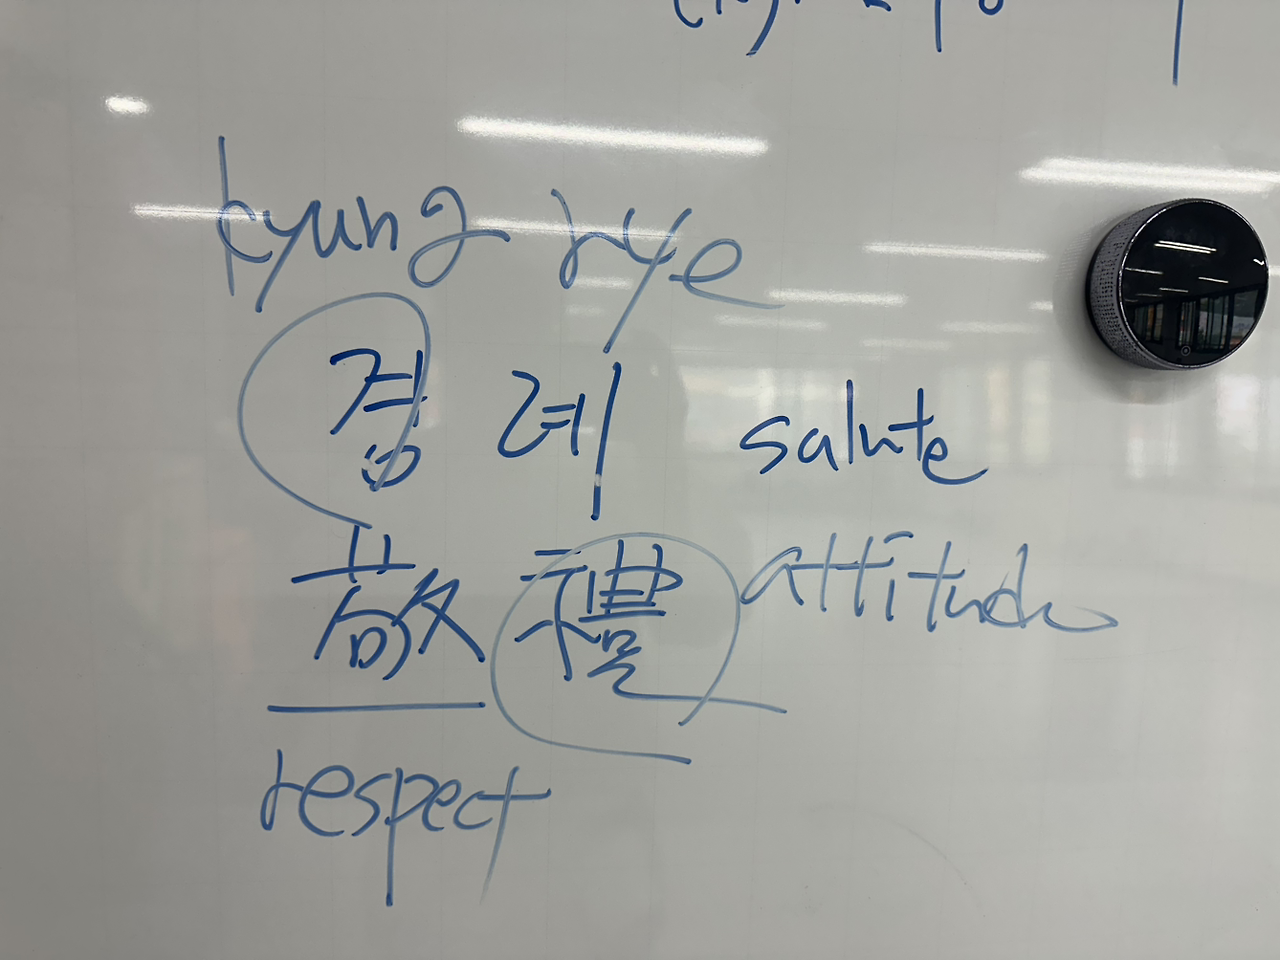 kyung rye
경례 salute
敬禮 attitude
respect